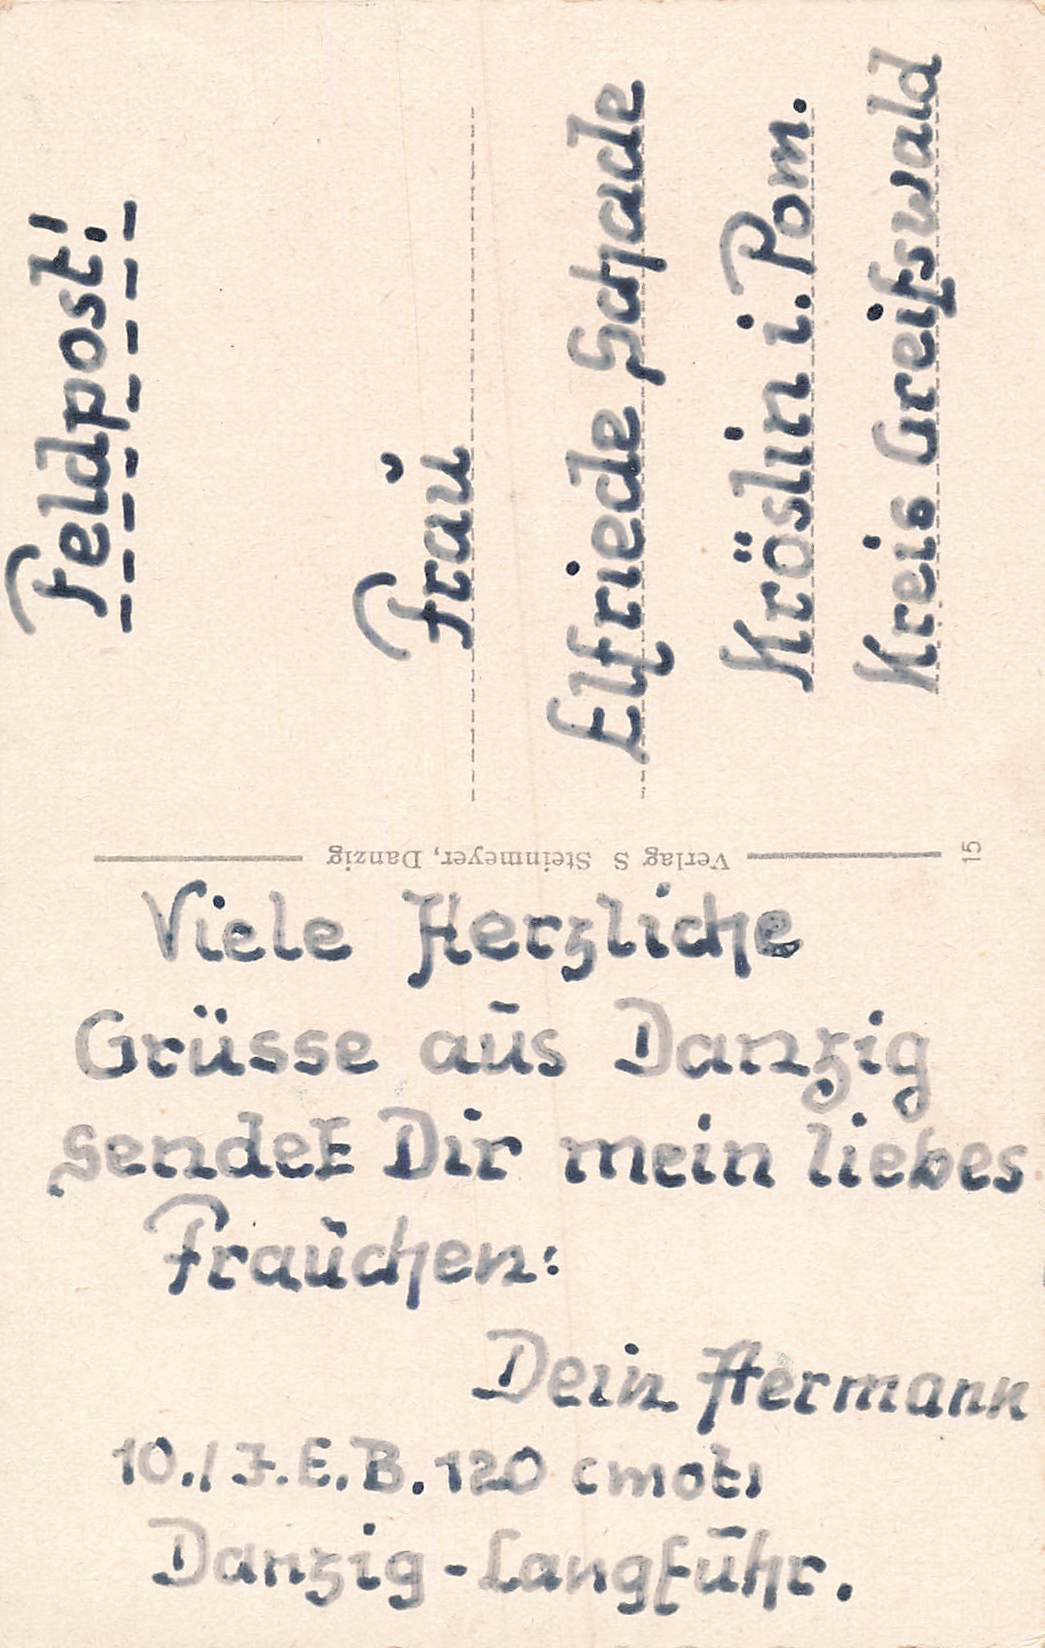 Feldpost!
Frau
Elfriede Schade
Kröslin i. Pom.
Kreis Greifswald
Verlag S Steinmeyer, Danzig
15
Viele Herzliche
Grüsse aus Danzig
sendet Dir mein liebes
Frauchen:
Dein Hermann
10./J.E.B. 120 (mot)
Danzig-Langfuhr.